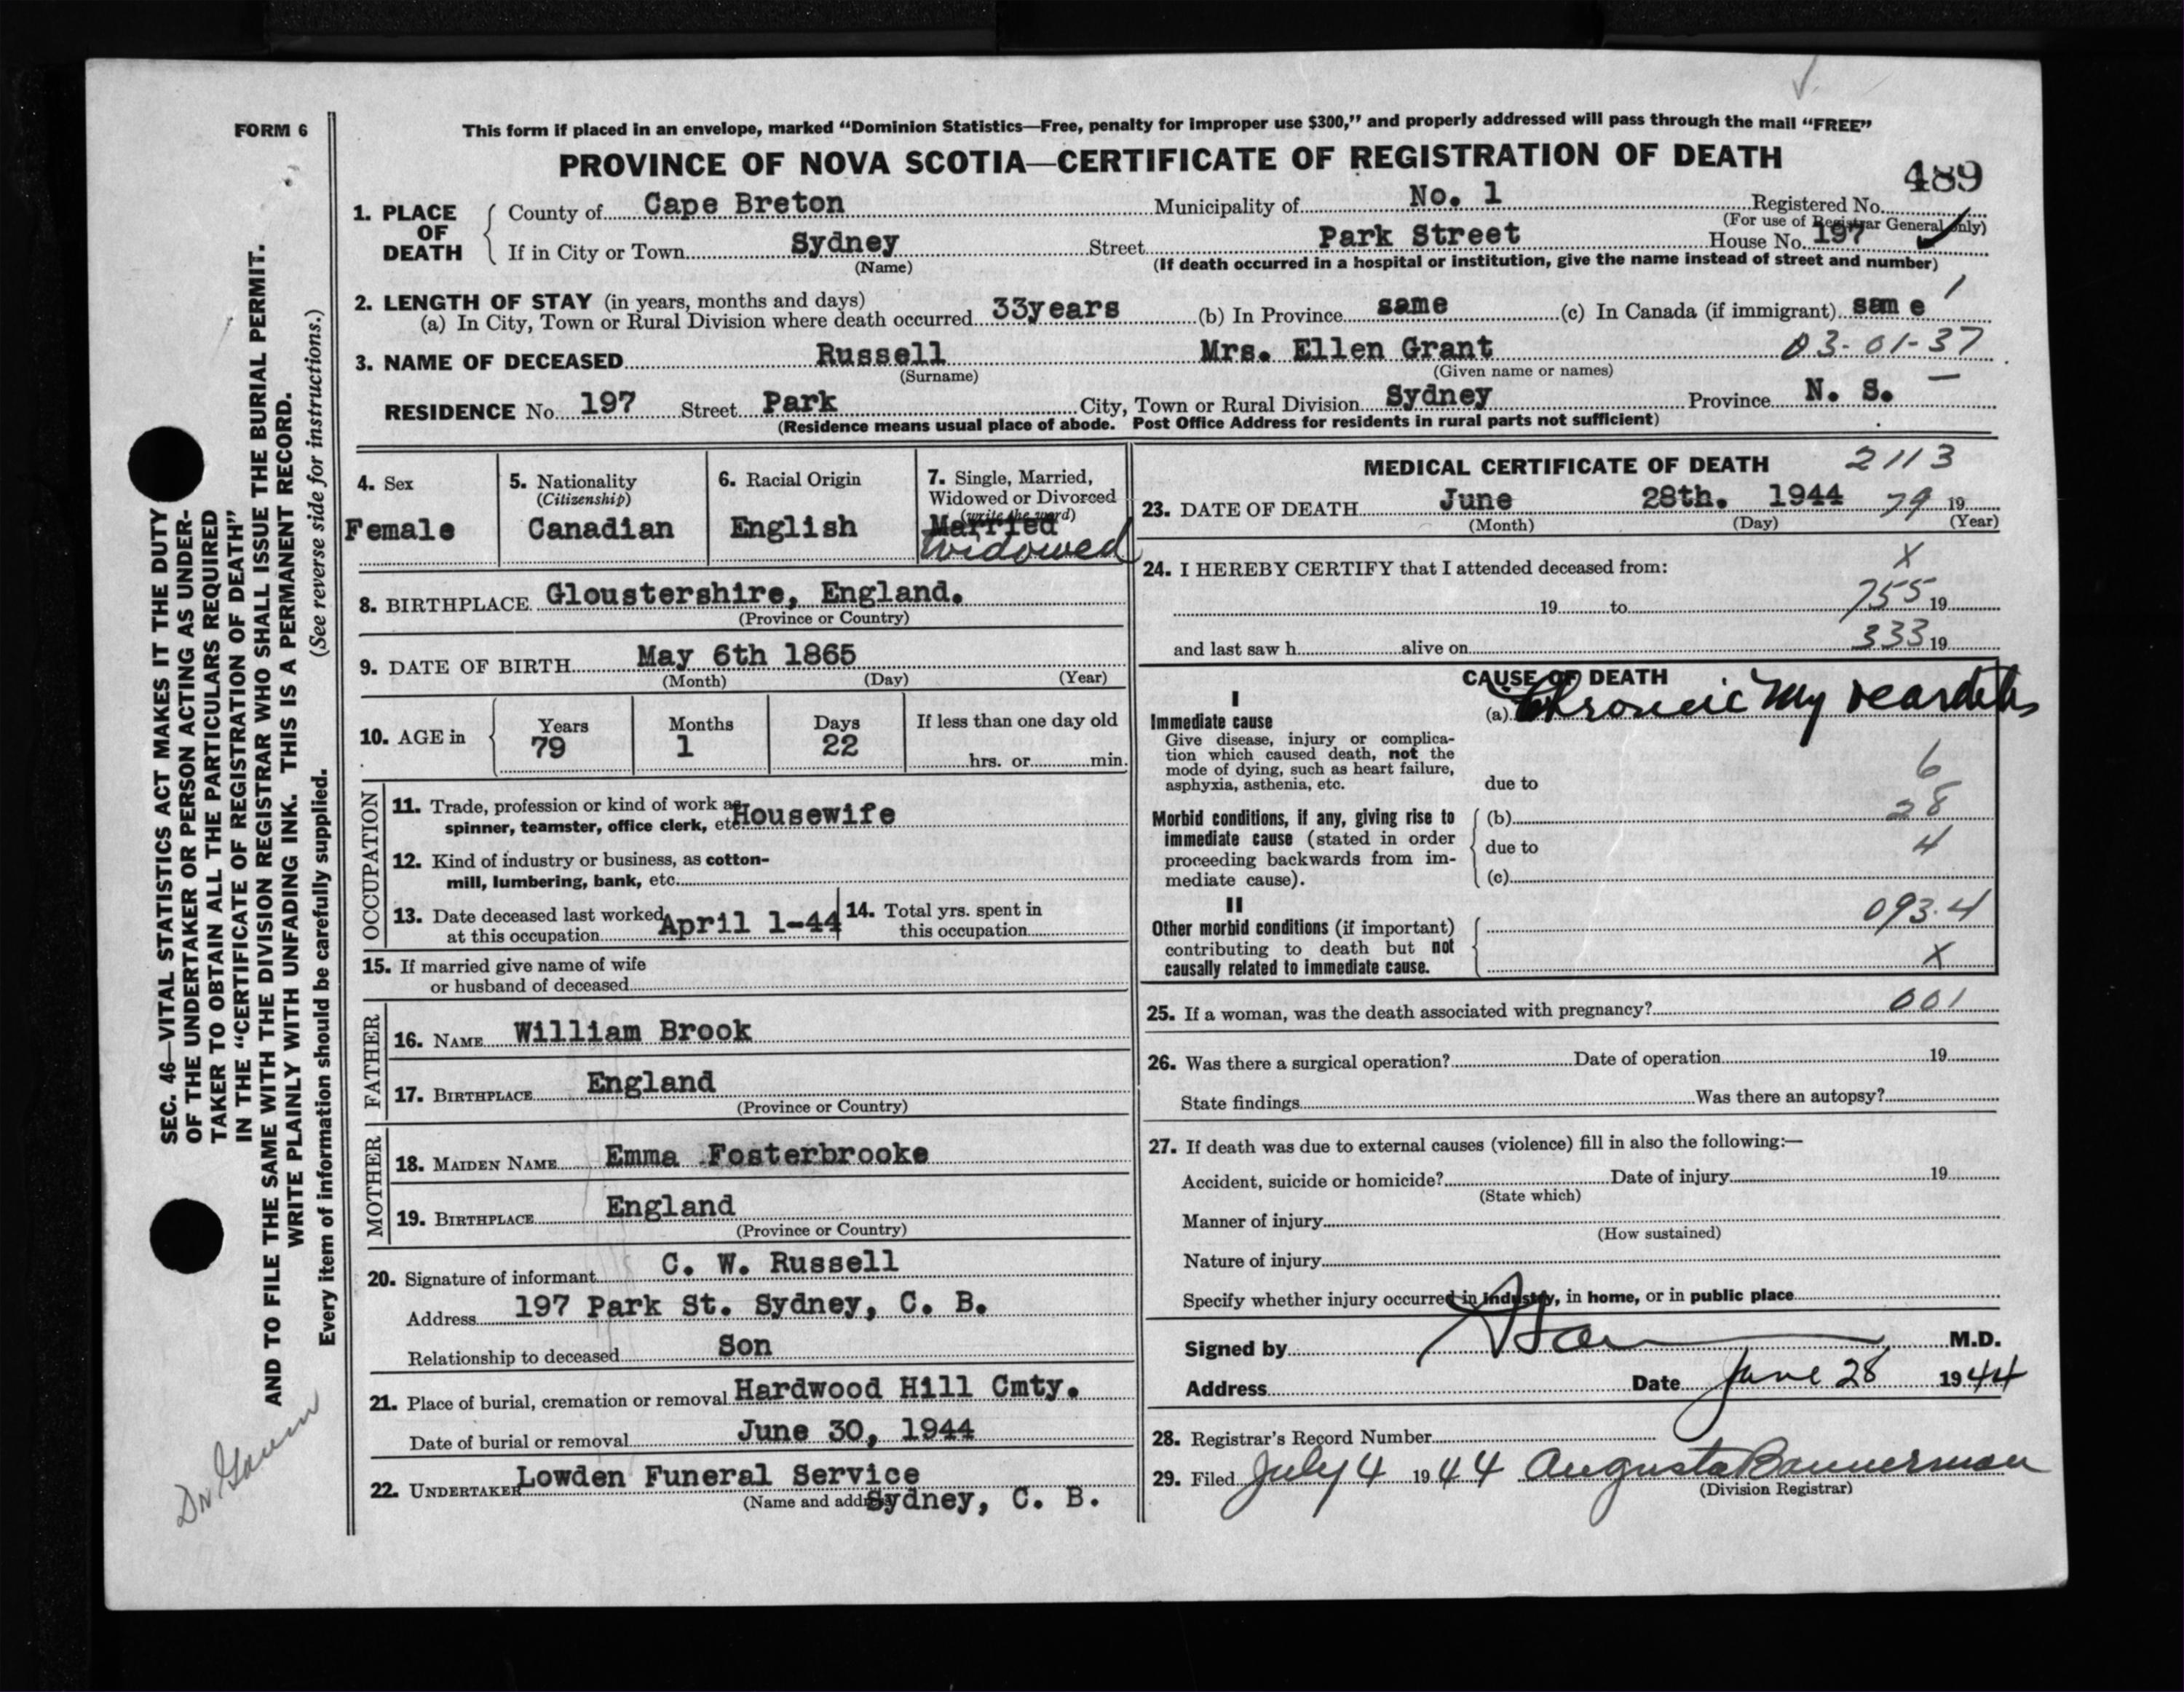 FORM 6
This form if placed in an envelope, marked “Dominion Statistics—Free, penalty for improper use $300,” and properly addressed will pass through the mail “FREE”
PROVINCE OF NOVA SCOTIA—CERTIFICATE OF REGISTRATION OF DEATH
489
1. PLACE OF DEATH
County of Cape Breton Municipality of No. 1 Registered No.
(For use of Registrar General only)
If in City or Town Sydney Street Park Street House No. 197
(Name) (If death occurred in a hospital or institution, give the name instead of street and number)
2. LENGTH OF STAY (in years, months and days) 1
(a) In City, Town or Rural Division where death occurred 33years (b) In Province same (c) In Canada (if immigrant) sam e
3. NAME OF DECEASED Russell Mrs. Ellen Grant 03-01-37
(Surname) (Given name or names)
RESIDENCE No. 197 Street Park City, Town or Rural Division Sydney Province N. S.
(Residence means usual place of abode. Post Office Address for residents in rural parts not sufficient)
4. Sex
Female
5. Nationality
(Citizenship)
Canadian
6. Racial Origin
English
7. Single, Married,
Widowed or Divorced
(write the word)
Married
Widowed
8. BIRTHPLACE Gloustershire, England.
(Province or Country)
9. DATE OF BIRTH May 6th 1865
(Month) (Day) (Year)
10. AGE in
Years Months Days If less than one day old
79 1 22
hrs. or min.
OCCUPATION
11. Trade, profession or kind of work as
spinner, teamster, office clerk, etc. Housewife
12. Kind of industry or business, as cotton-
mill, lumbering, bank, etc.
13. Date deceased last worked
at this occupation April 1-44
14. Total yrs. spent in
this occupation
15. If married give name of wife
or husband of deceased
FATHER
16. NAME William Brook
17. BIRTHPLACE England
(Province or Country)
MOTHER
18. MAIDEN NAME Emma Fosterbrooke
19. BIRTHPLACE England
(Province or Country)
20. Signature of informant C. W. Russell
Address 197 Park St. Sydney, C. B.
Relationship to deceased Son
21. Place of burial, cremation or removal Hardwood Hill Cmty.
Date of burial or removal June 30, 1944
22. UNDERTAKER Lowden Funeral Service
(Name and address) Sydney, C. B.
MEDICAL CERTIFICATE OF DEATH 2113
23. DATE OF DEATH June 28th. 1944 79 19
(Month) (Day) (Year)
24. I HEREBY CERTIFY that I attended deceased from: X
19 to 755 19
and last saw h alive on 333 19
CAUSE OF DEATH
I
Immediate cause
Give disease, injury or complica-
tion which caused death, not the
mode of dying, such as heart failure,
asphyxia, asthenia, etc.
(a) Chronic
due to
6
Morbid conditions, if any, giving rise to
immediate cause (stated in order
proceeding backwards from im-
mediate cause).
(b) 28
due to 4
(c)
II
Other morbid conditions (if important)
contributing to death but not
causally related to immediate cause.
093.4
X
25. If a woman, was the death associated with pregnancy? 001
26. Was there a surgical operation? Date of operation 19
State findings Was there an autopsy?
27. If death was due to external causes (violence) fill in also the following:—
Accident, suicide or homicide? Date of injury 19
(State which)
Manner of injury
(How sustained)
Nature of injury
Specify whether injury occurred in industry, in home, or in public place
Signed by M.D.
Address Date June 28 1944
28. Registrar's Record Number
29. Filed July 4 1944 Augusta Bannerman
(Division Registrar)
SEC. 46—VITAL STATISTICS ACT MAKES IT THE DUTY
OF THE UNDERTAKER OR PERSON ACTING AS UNDER-
TAKER TO OBTAIN ALL THE PARTICULARS REQUIRED
IN THE “CERTIFICATE OF REGISTRATION OF DEATH”
AND TO FILE THE SAME WITH THE DIVISION REGISTRAR WHO SHALL ISSUE THE BURIAL PERMIT.
WRITE PLAINLY WITH UNFADING INK. THIS IS A PERMANENT RECORD.
Every item of information should be carefully supplied. (See reverse side for instructions.)
Dr